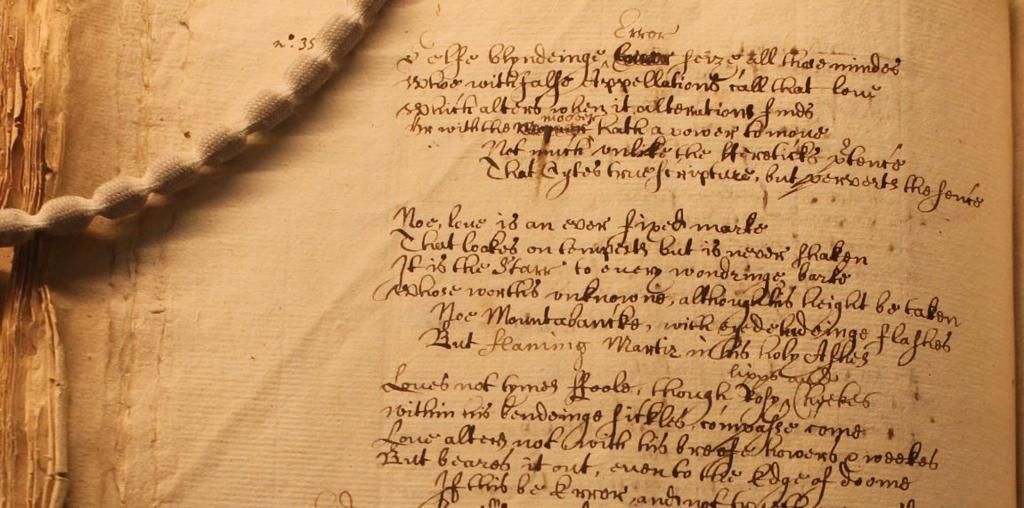 n°: 35
Error
Selfe blyndeinge seize all those mindes
Whoe with false Appellations call that love
Which alters when it alterations finds
mover
Or with the hath a power to move
Not much unlike the Heretickes ptence
That Cytes true scripture, but perverts the sence
Noe, love is an ever fixed marke
That lookes on tempests but is never shaken
It is the Starr to every wandringe barke
Whose worth's unknowne, although his height be taken
Noe Mountabancke, with eye deludeinge flashes
But flaming Martir in his holy Ashes
lipps and
Loves not tymes Foole, though Rosy Cheekes
within his bendeinge sickles, compasse come
Love alters not with his breife howers & weekes
But beares it out, even to the Edge of doome
If this be Error, and not